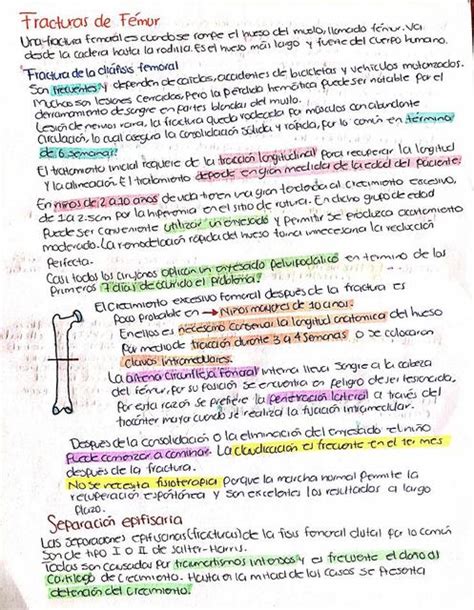 Fracturas de Fémur
Una fractura femoral es cuando se rompe el hueso del muslo, llamado fémur. Va
desde la cadera hasta la rodilla. Es el hueso más largo y fuerte del cuerpo humano.
Fractura de la diáfisis femoral
Son frecuentes y dependen de caídas, accidentes de bicicletas y vehículos motorizados.
Muchas son lesiones cerradas, pero la pérdida hemática puede ser notable por el
derramamiento de sangre en partes blandas del muslo.
Lesión de nervios rara, la fractura queda rodeada por músculos con abundante
circulación, lo cual asegura la consolidación sólida y rápida, por lo común en término
de 6 semanas.
El tratamiento inicial requiere de la tracción longitudinal para recuperar la longitud
y la alineación. El tratamiento depende en gran medida de la edad del paciente.
En niños de 2 a 10 años de vida tienen una gran tendencia al crecimiento excesivo,
de 1 a 2.5cm por la hiperemia en el sitio de rotura. En dicho grupo de edad
puede ser conveniente utilizar un enyesado y permitir se produzca acortamiento
moderado. La remodelación rápida del hueso torna innecesaria la reducción
perfecta.
Casi todos los cirujanos aplican un enyesado pelvipodálico en termino de los
primeros 7 días de ocurrido el problema.
El crecimiento excesivo femoral después de la fractura es
poco probable en → Niños mayores de 10 años.
En ellos es necesario conservar la longitud anatómica del hueso
por medio de tracción durante 3 a 4 semanas o se colocaran
clavos intramedulares.
La arteria circunfleja femoral interna lleva sangre a la cabeza
del fémur, por su posición se encuentra en peligro de ser lesionada,
Por esta razón se prefiere la penetración lateral a través del
trocánter mayor cuando se realiza la fijación intramedular.
Después de la consolidación o la eliminación del enyesado el niño
puede comenzar a caminar. La claudicación es frecuente en el 1er mes
después de la fractura.
No se necesita fisioterapia porque la marcha normal permite la
recuperación espontánea y son excelentes los resultados a largo
plazo.
Separación epifisaria
Las separaciones epifisarias (fracturas) de la fisis femoral distal por lo común
son de tipo I o II de Salter-Harris.
Todas son causadas por traumatismos intensos y es frecuente el daño al
cartílago de crecimiento. Hasta en la mitad de los casos se presenta
detención del crecimiento.